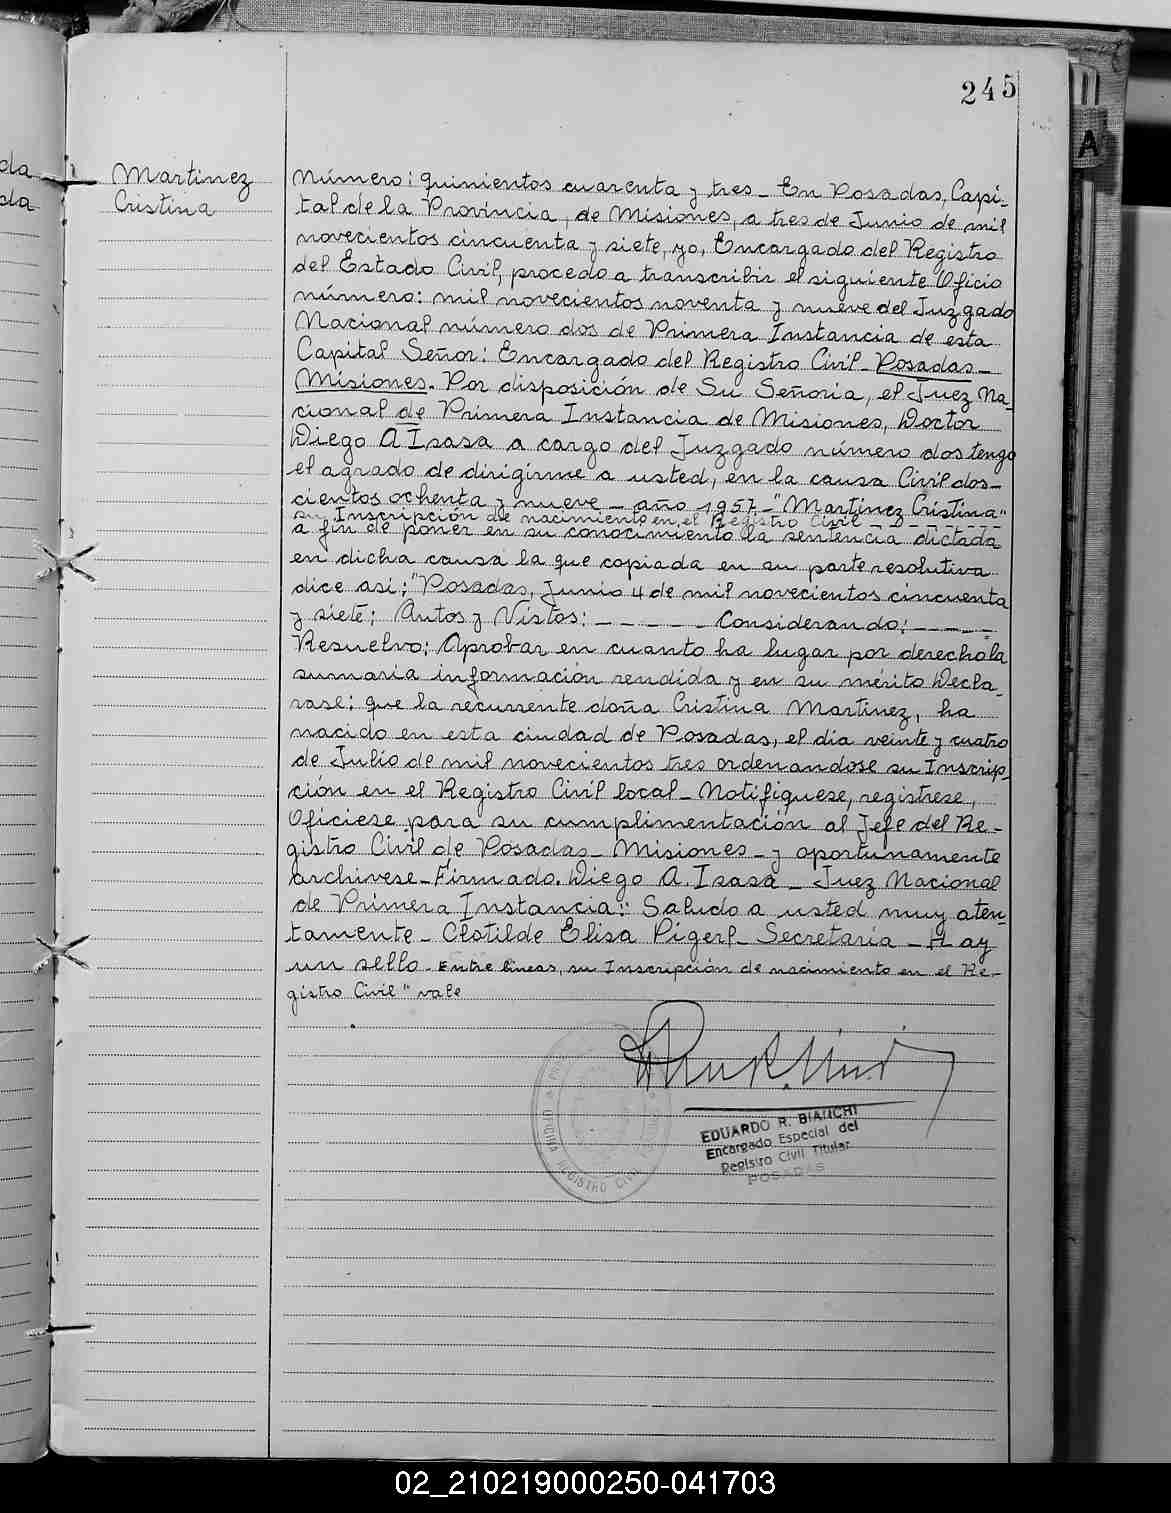 245
da
da
Martinez
Cristina
Número: quinientos cuarenta y tres - En Posadas, Capi-
tal de la Provincia, de Misiones, a tres de Junio de mil
novecientos cincuenta y siete, yo, Encargado del Registro
del Estado Civil, procedo a transcribir el siguiente Oficio
número: mil novecientos noventa y nueve del Juzgado
Nacional número dos de Primera Instancia de esta
Capital Señor: Encargado del Registro Civil - Posadas -
Misiones. Por disposición de Su Señoria, el Juez Na-
cional de Primera Instancia de Misiones, Doctor
Diego A Isasa a cargo del Juzgado número dos tengo
el agrado de dirigirme a usted, en la causa Civil dos-
cientos ochenta y nueve - año 1957 - "Martinez Cristina"
su Inscripción de nacimiento en el Registro Civil
a fin de poner en su conocimiento la sentencia dictada
en dicha causa la que copiada en su parte resolutiva
dice asi: "Posadas, Junio 4 de mil novecientos cincuenta
y siete; Autos y Vistos: - - - - - Considerando: - - - -
Resuelvo: Aprobar en cuanto ha lugar por derecho la
sumaria información rendida y en su mérito Decla-
rase: que la recurrente doña Cristina Martinez, ha
nacido en esta ciudad de Posadas, el día veinte y cuatro
de Julio de mil novecientos tres ordenandose su Inscrip-
ción en el Registro Civil local - Notifiquese, registrese,
Oficiese para su cumplimentación al Jefe del Re-
gistro Civil de Posadas - Misiones - y oportunamente
archivese - Firmado. Diego A. Isasa - Juez Nacional
de Primera Instancia:" Saludo a usted muy aten-
tamente - Clotilde Elisa Pigerl - Secretaria - Hay
un sello. Entre lineas, su Inscripción de nacimiento en el Re-
gistro Civil" vale
OFICINA REGISTRO CIVIL
EDUARDO R. BIANCHI
Encargado Especial del
Registro Civil Titular
POSADAS
A
02_210219000250-041703